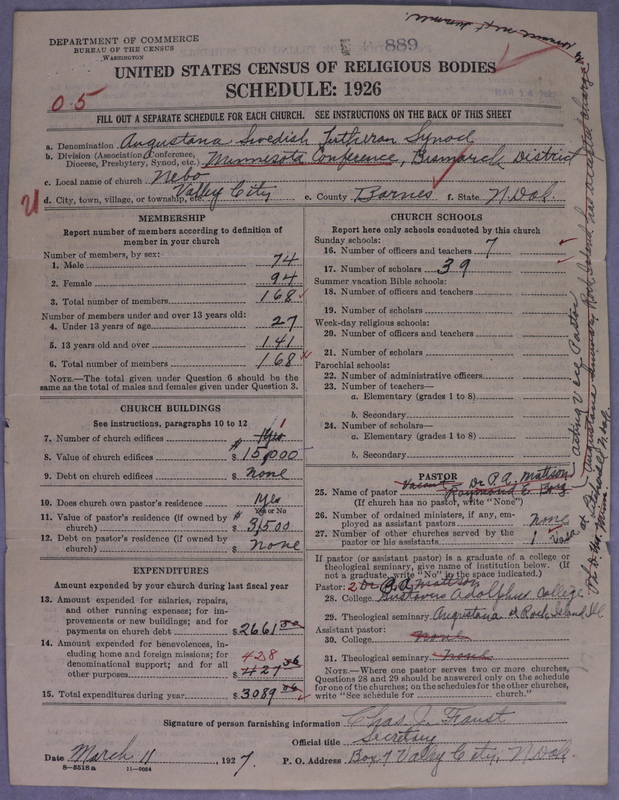 DEPARTMENT OF COMMERCE
BUREAU OF THE CENSUS
WASHINGTON
889
UNITED STATES CENSUS OF RELIGIOUS BODIES
SCHEDULE: 1926
05
FILL OUT A SEPARATE SCHEDULE FOR EACH CHURCH. SEE INSTRUCTIONS ON THE BACK OF THIS SHEET
a. Denomination Augustana Swedish Lutheran Synod
b. Division (Association, Conference, Diocese, Presbytery, Synod, etc.) Minnesota Conference, Bismarck District
c. Local name of church Nebo
d. City, town, village, or township, etc. Valley City e. County Barnes f. State N. Dak.
MEMBERSHIP
Report number of members according to definition of member in your church
Number of members, by sex:
1. Male 74
2. Female 94
3. Total number of members 168
Number of members under and over 13 years old:
4. Under 13 years of age 27
5. 13 years old and over 141
6. Total number of members 168
NOTE.—The total given under Question 6 should be the same as the total of males and females given under Question 3.
CHURCH BUILDINGS
See instructions, paragraphs 10 to 12
7. Number of church edifices Yes 1
8. Value of church edifices $ 15,000
9. Debt on church edifices $ None
10. Does church own pastor's residence Yes
Yes or No
11. Value of pastor's residence (if owned by church) $ 3,500
12. Debt on pastor's residence (if owned by church) $ none
EXPENDITURES
Amount expended by your church during last fiscal year
13. Amount expended for salaries, repairs, and other running expenses; for improvements or new buildings; and for payments on church debt $ 2661
14. Amount expended for benevolences, including home and foreign missions; for denominational support; and for all other purposes $ 427 428
15. Total expenditures during year $ 3089
CHURCH SCHOOLS
Report here only schools conducted by this church
Sunday schools:
16. Number of officers and teachers 7
17. Number of scholars 39
Summer vacation Bible schools:
18. Number of officers and teachers
19. Number of scholars
Week-day religious schools:
20. Number of officers and teachers
21. Number of scholars
Parochial schools:
22. Number of administrative officers
23. Number of teachers—
a. Elementary (grades 1 to 8)
b. Secondary
24. Number of scholars—
a. Elementary (grades 1 to 8)
b. Secondary
PASTOR
Vacant Dr P. A. Mattson
25. Name of pastor Raymond E.
(If church has no pastor, write "None")
26. Number of ordained ministers, if any, employed as assistant pastors None
27. Number of other churches served by the pastor or his assistants 1
If pastor (or assistant pastor) is a graduate of a college or theological seminary, give name of institution below. (If not a graduate, write "No" in the space indicated.)
Pastor: Dr P. A. Mattson
28. College Gustavus Adolphus College
29. Theological seminary Augustana at Rock Island Ill
Assistant pastor:
30. College None
31. Theological seminary None
NOTE.—Where one pastor serves two or more churches, Questions 28 and 29 should be answered only on the schedule for one of the churches; on the schedules for the other churches, write "See schedule for church."
Signature of person furnishing information Chas. J. Faust
Official title Secretary
Date March 11, 1927. P. O. Address Box 7 Valley City, N Dak.
8—5518a 11—9054
acting Vice Pastor